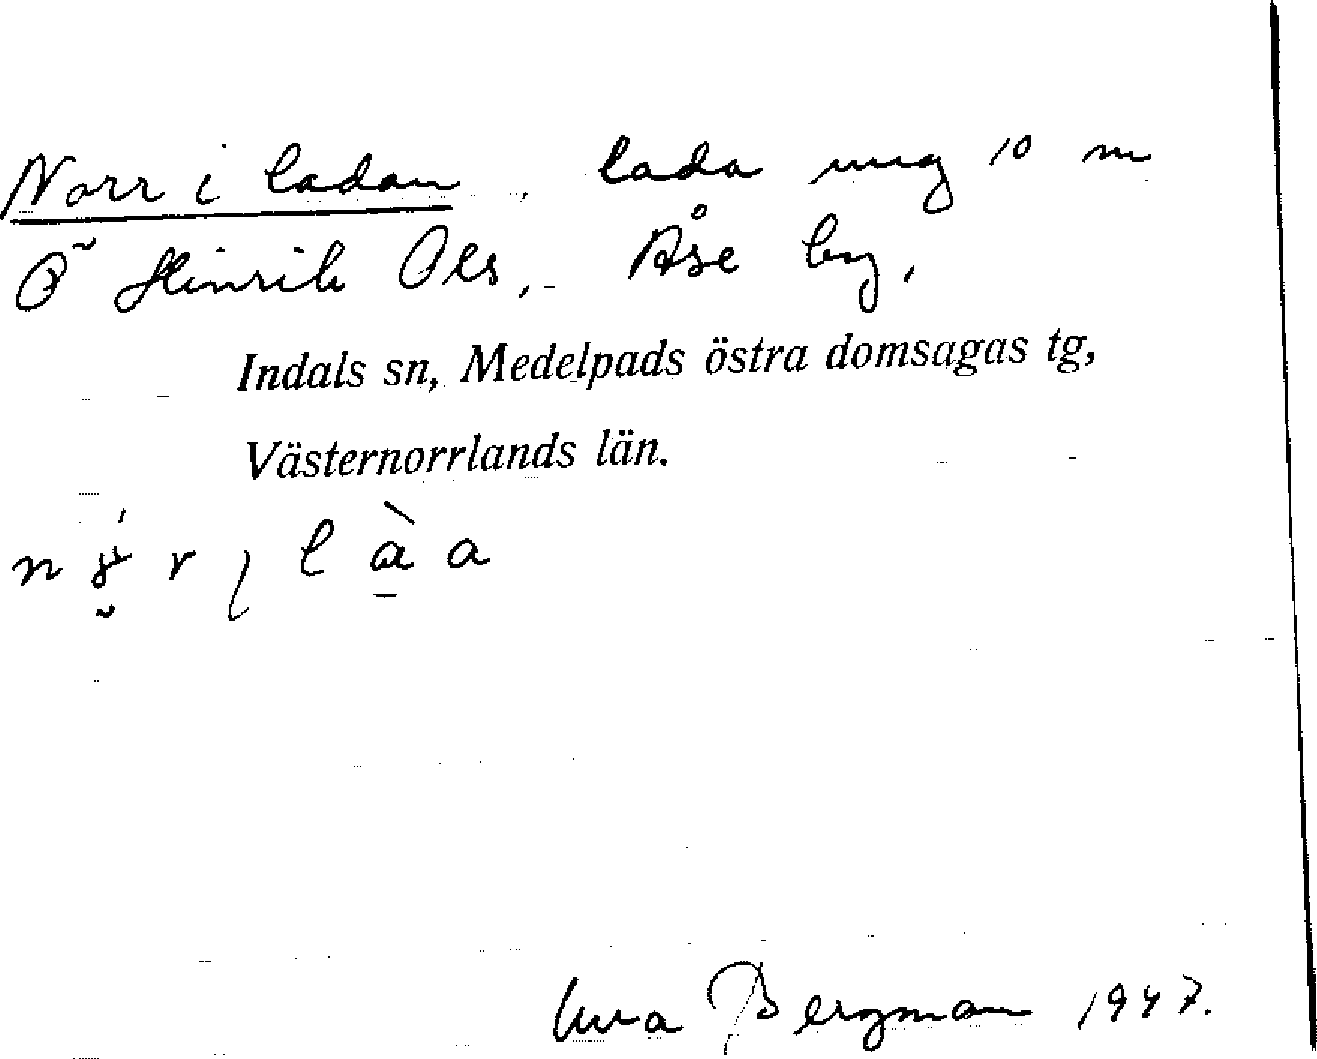 Norr i ladan, lada ung 10 m
Ö Hinrik Ols, Åse by,
Indals sn, Medelpads östra domsagas tg,
Västernorrlands län.
Bergman 1947.